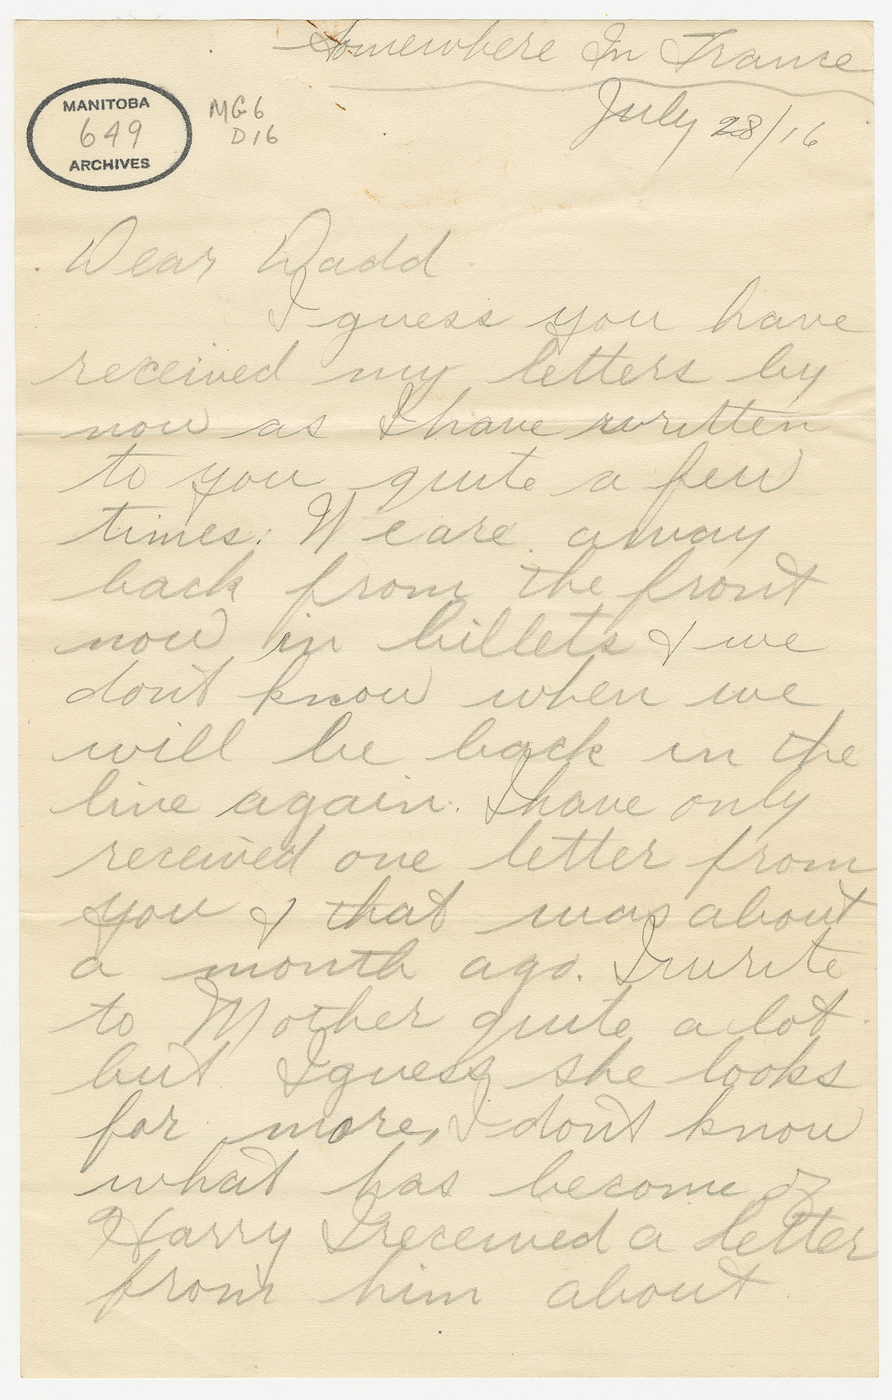 Somewhere In France
July 28/16
MANITOBA
649
ARCHIVES
MG6
D16
Dear Dadd.
I guess you have
received my letters by
now as I have written
to you quite a few
times. We are away
back from the front
now in billets & we
don't know when we
will be back in the
line again. I have only
received one letter from
you & that was about
a month ago. I write
to Mother quite a lot
but I guess she looks
for more, I don't know
what has become of
Harry I received a letter
from him about